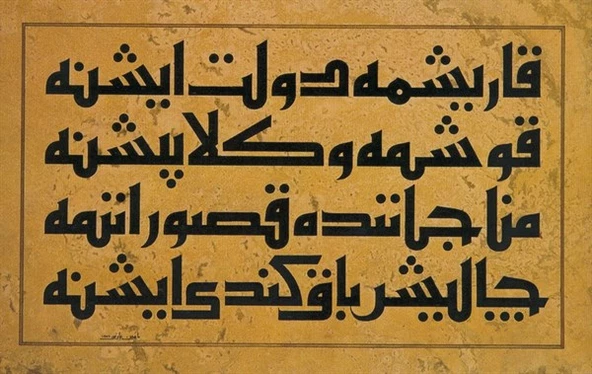 قاريشمه دولت ايشنه
قوشمه وكلا پيشنه
مناجاتنده قصور اتمه
چاليش باق كندى ايشنه